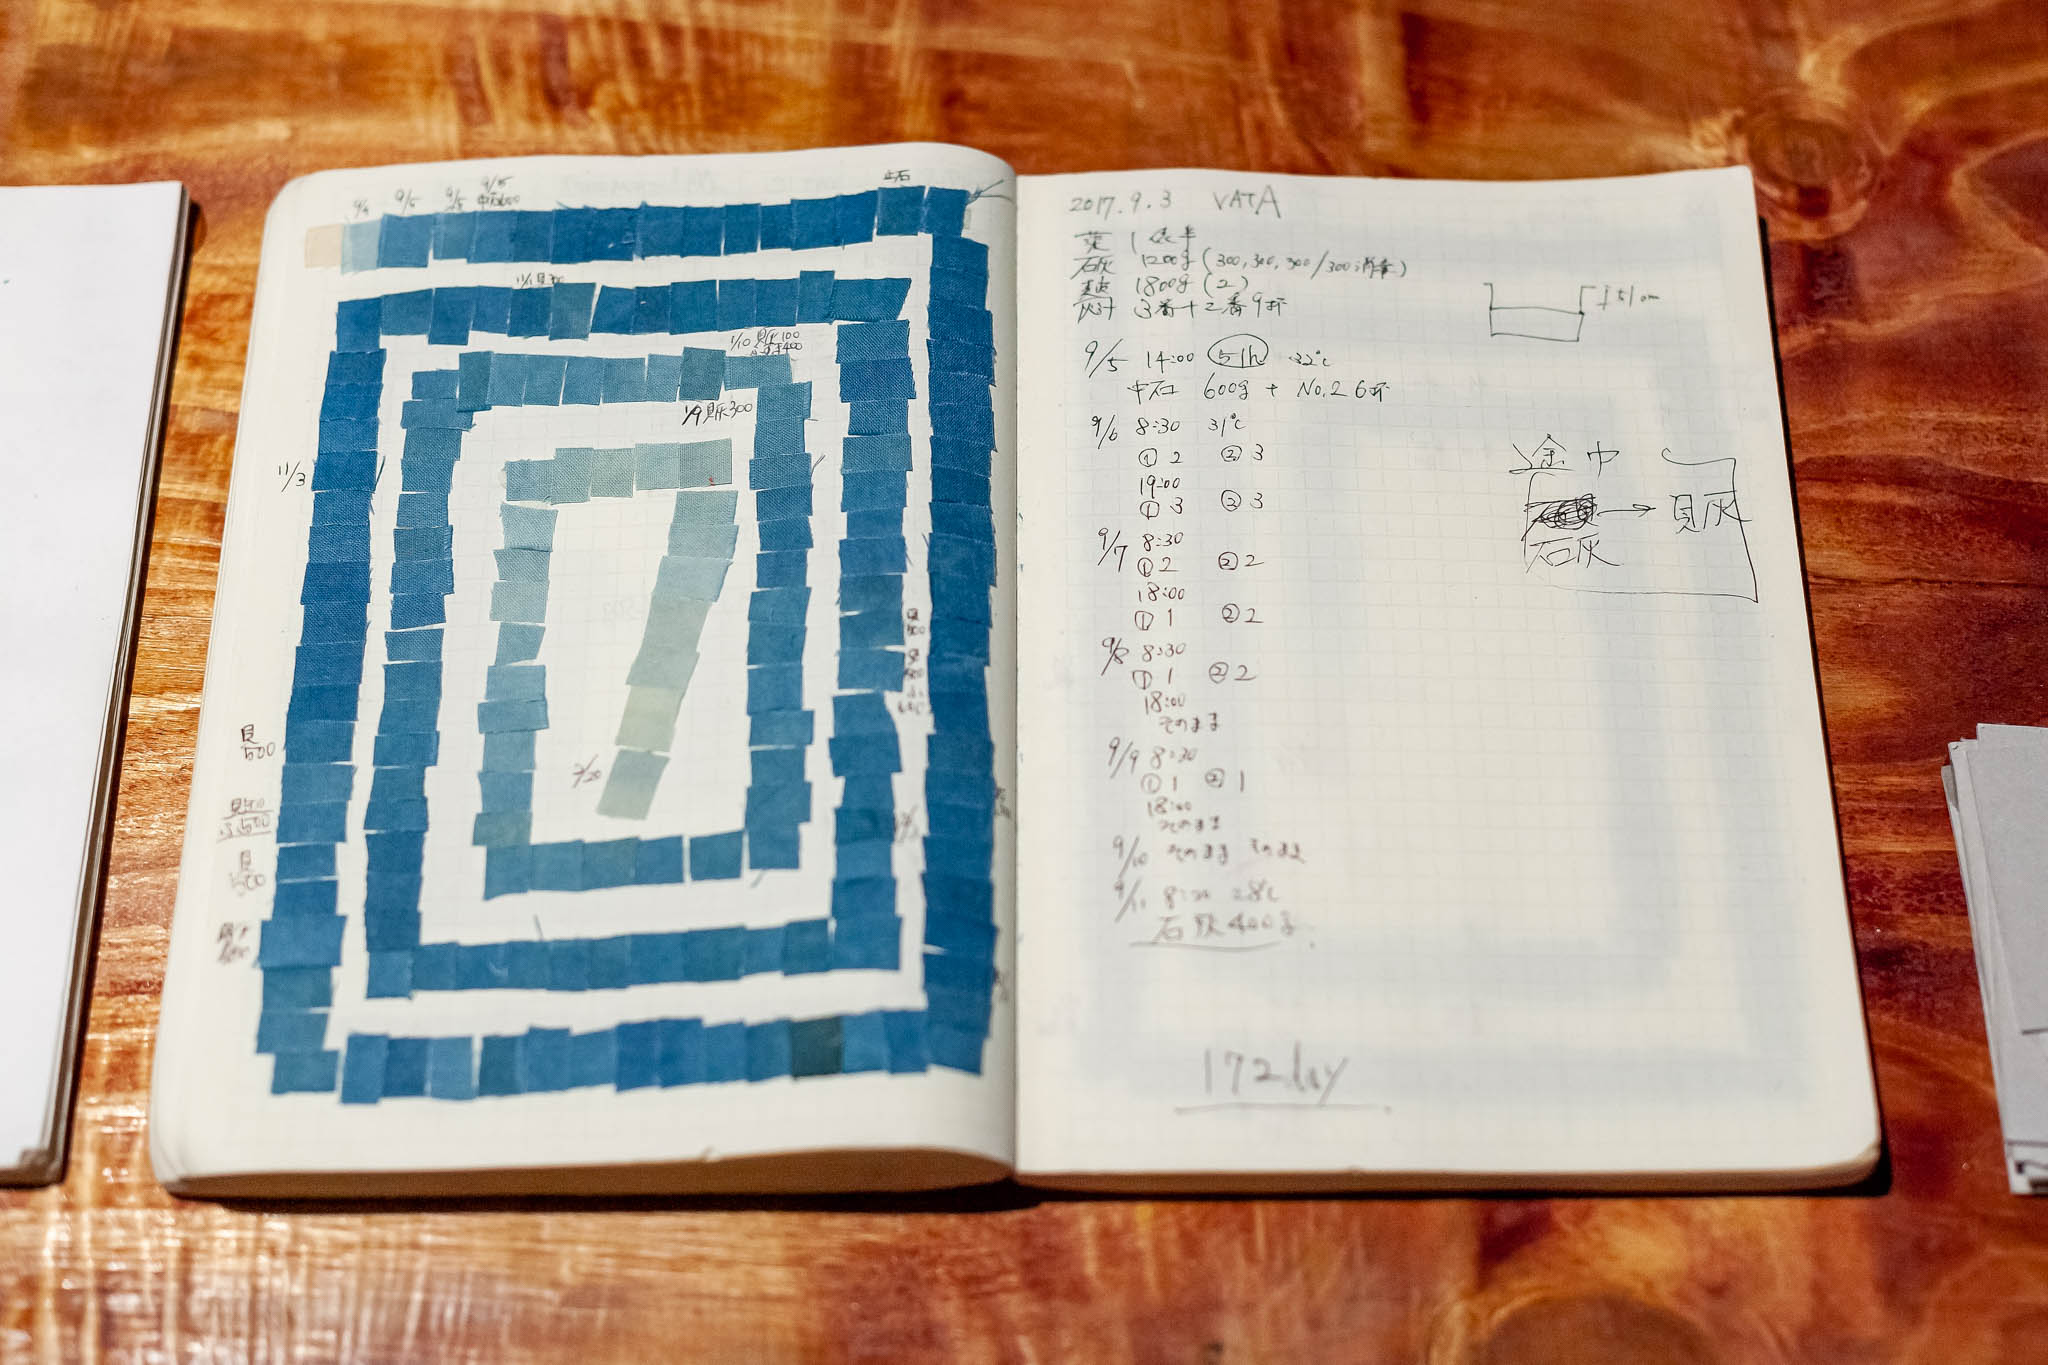 9/4 9/5 9/5 9/5
中石600
11/1 貝300
1/10 貝灰100
1/9 貝灰300
11/3
貝
500
貝
500
2/20
2017.9.3 VATA
石灰 1200g (300, 300, 300/300消費)
1800g (2)
3番+2番9杯
9/5 14:00 51h 32℃
中石 600g + No.2 6杯
9/6 8:30 31℃
① 2 ② 3
19:00
① 3 ② 3
9/7 8:30
① 2 ② 2
18:00
① 1 ② 2
9/8 8:30
① 1 ② 2
18:00
そのまま
9/9 8:30
① 1 ② 1
18:00
そのまま
9/10 そのまま そのまま
9/11 8:30 28℃
石灰400g
172day
途中
→ 貝灰
石灰